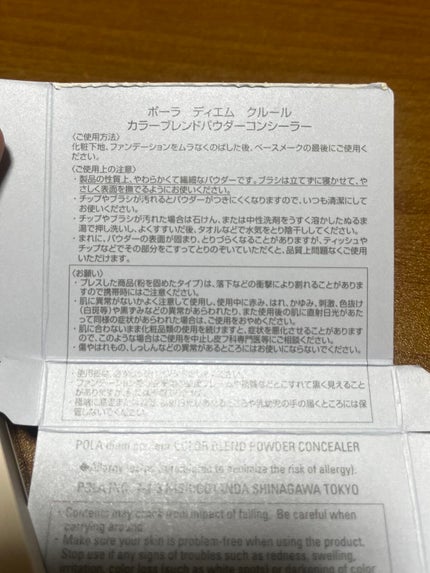 ポーラ ディエム クルール
カラーブレンドパウダーコンシーラー
〈ご使用方法〉
化粧下地、ファンデーションをムラなくのばした後、ベースメークの最後にご使用く
ださい。
〈ご使用上の注意〉
・製品の性質上、やわらかくて繊細なパウダーです。ブラシは立てずに寝かせて、や
さしく表面を撫でるようにお使いください。
・チップやブラシが汚れるとパウダーがつきにくくなりますので、いつも清潔にして
お使いください。
・チップやブラシが汚れた場合は石けん、または中性洗剤をうすく溶かしたぬるま
湯で押し洗いし、よくすすいだ後、タオルなどで水気をとり陰干ししてください。
・まれに、パウダーの表面が固まり、とりづらくなることがありますが、ティッシュや
チップなどでその部分をこすってとりのぞいていただくと、品質上問題なくご使用
いただけます。
〈お願い〉
・プレスした商品(粉を固めたタイプ)は、落下などの衝撃により割れることがあり
ますので携帯時にはご注意ください。
・肌に異常がないかよく注意して使用し、使用中に赤み、はれ、かゆみ、刺激、色抜け
(白斑等)や黒ずみなどの異常があらわれたり、また使用後の肌に直射日光があた
って同様の症状があらわれた場合は、ご使用をおやめください。
・肌に合わないまま化粧品類の使用を続けますと、症状を悪化させることがあります
ので、このような場合はご使用を中止し皮フ科専門医等にご相談ください。
・傷やはれもの、しっしんなどの異常があるところにはお使いにならないでください。
・ファンデーション
こすれて黒く見えること
がありますが
乳幼児の手の届くところには
管しないでください。
POLA COLOR BLEND POWDER CONCEALER
minimize the risk of allergy).
POLA SHINAGAWA TOKYO
• Contents may crack from impact of falling. Be careful when
carrying around.
• Make sure your skin is problem-free when using the product.
Stop use if any signs of troubles such as redness, swelling,
irritation, color loss (such as white spots) or darkening of color